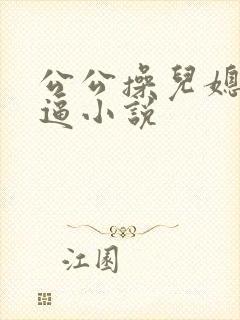 公公操兒媳
逼小說
江園